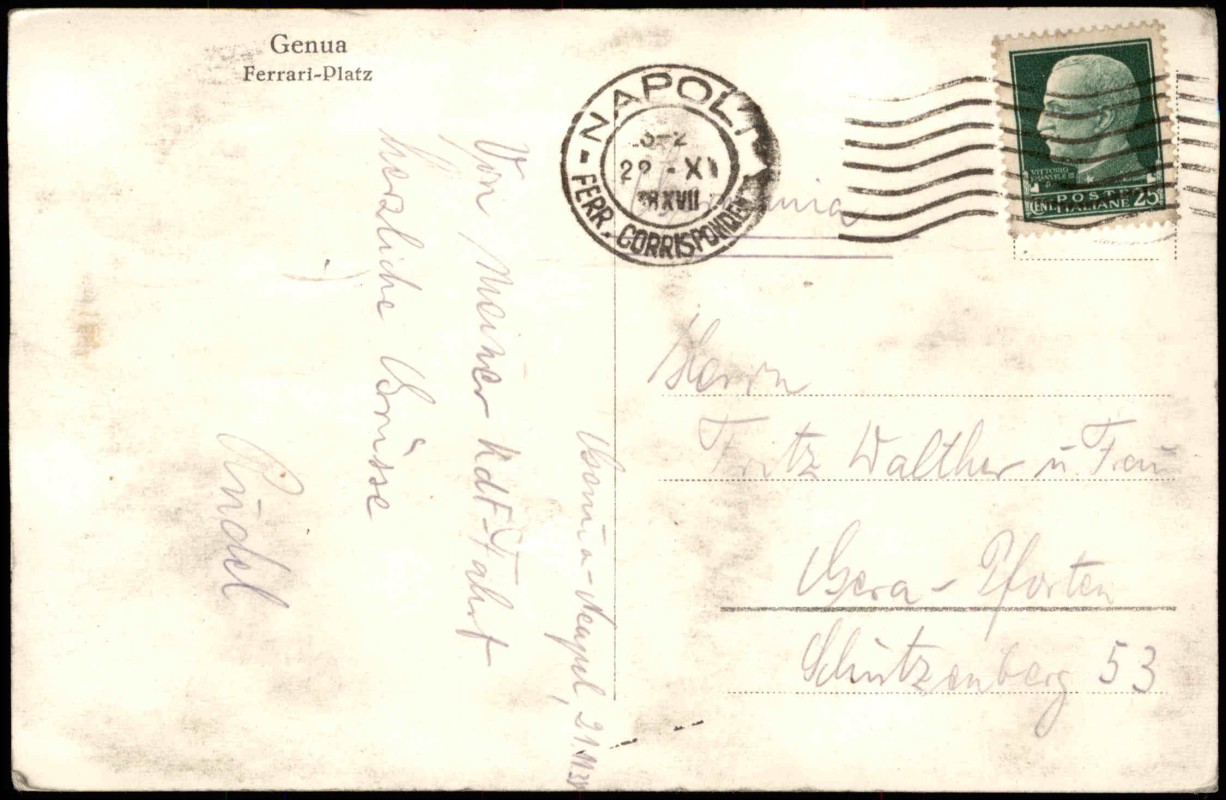 Genua
Ferrari-Platz
Genua-Neapel, 21.11.38
Von meiner KdF-Fahrt
herzliche Grüsse
Rudel
NAPOLI
22 - XI
XVII
FERR. CORRISPONDENZE
VITTORIO
EMANUELE III
POSTE
CENT. ITALIANE 25
Germania
Herrn
Fritz Walther u. Frau
Gera-Pforten
Schützenberg 53